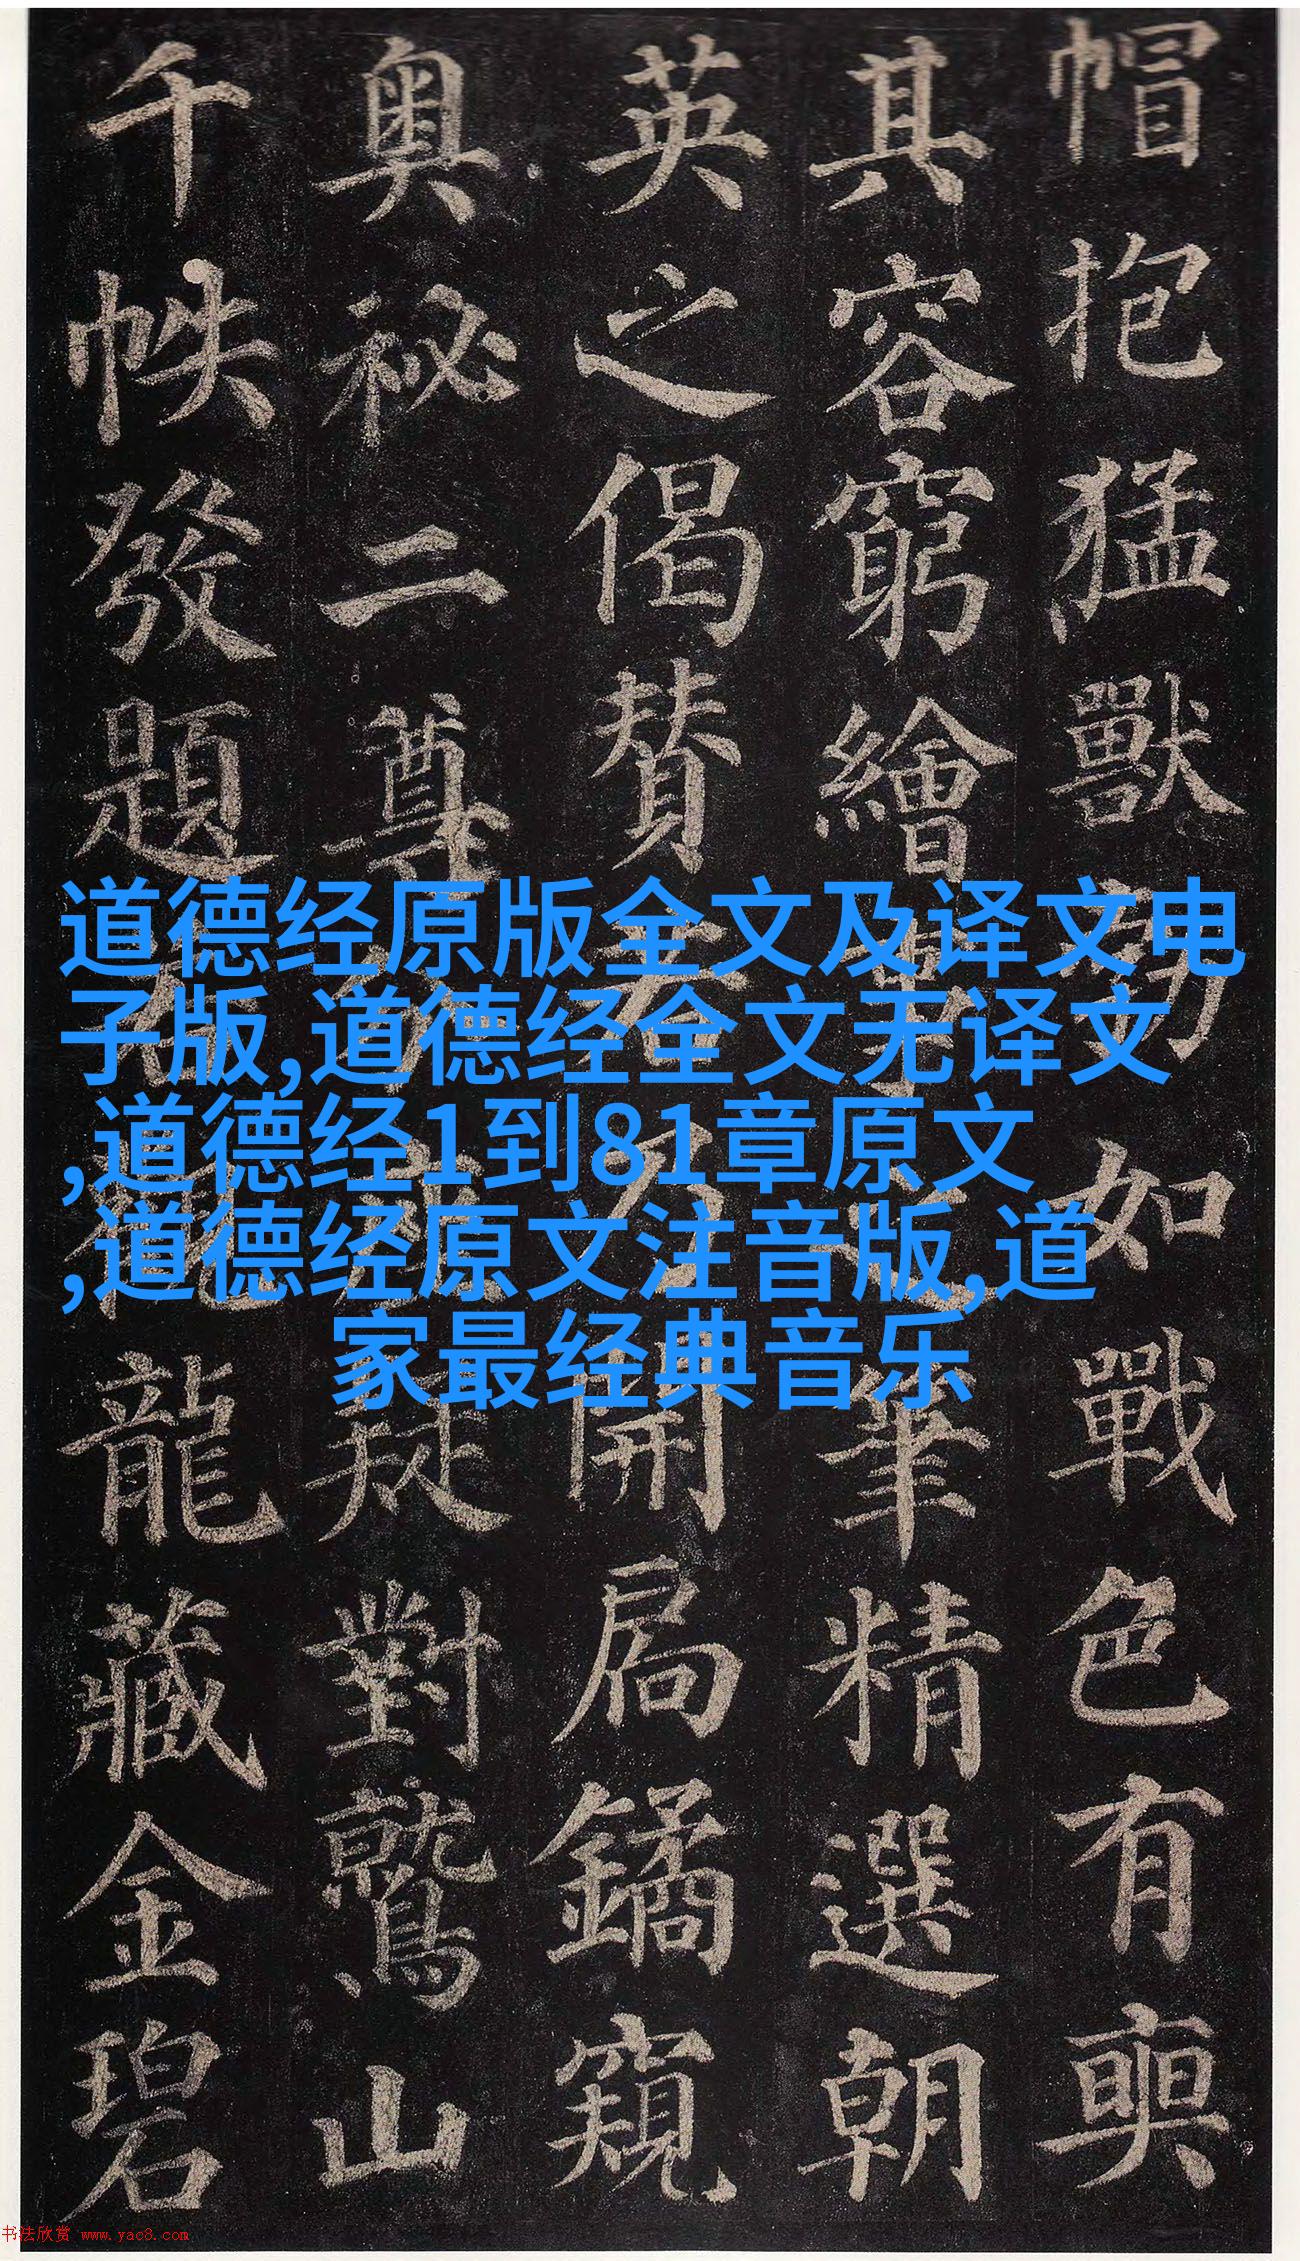 帽抱猛獸勃如戰色有奭
其容窮繪事之筆精選朝
英之偈贊若乃開扃鐍窺
奧祕二尊分座疑對鷲山
千帙發題若觀龍藏金碧
道德经原版全文及译文电
子版,道德经全文无译文
,道德经1到81章原文
,道德经原文注音版,道
家最经典音乐
书法欣赏 www.yac8.com